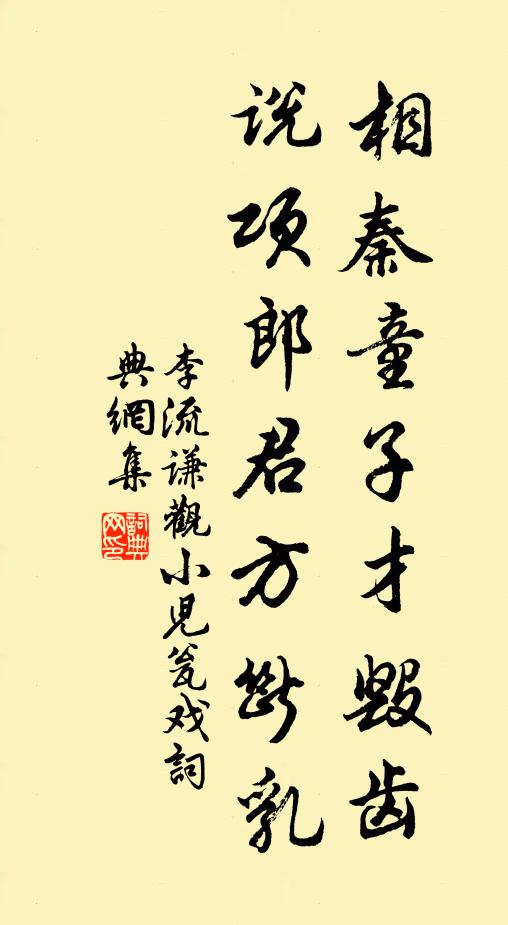 相秦童子才毁齿
说项郎君方断乳
李流谦觀小児瓮戏詞
典網集
詞典網印